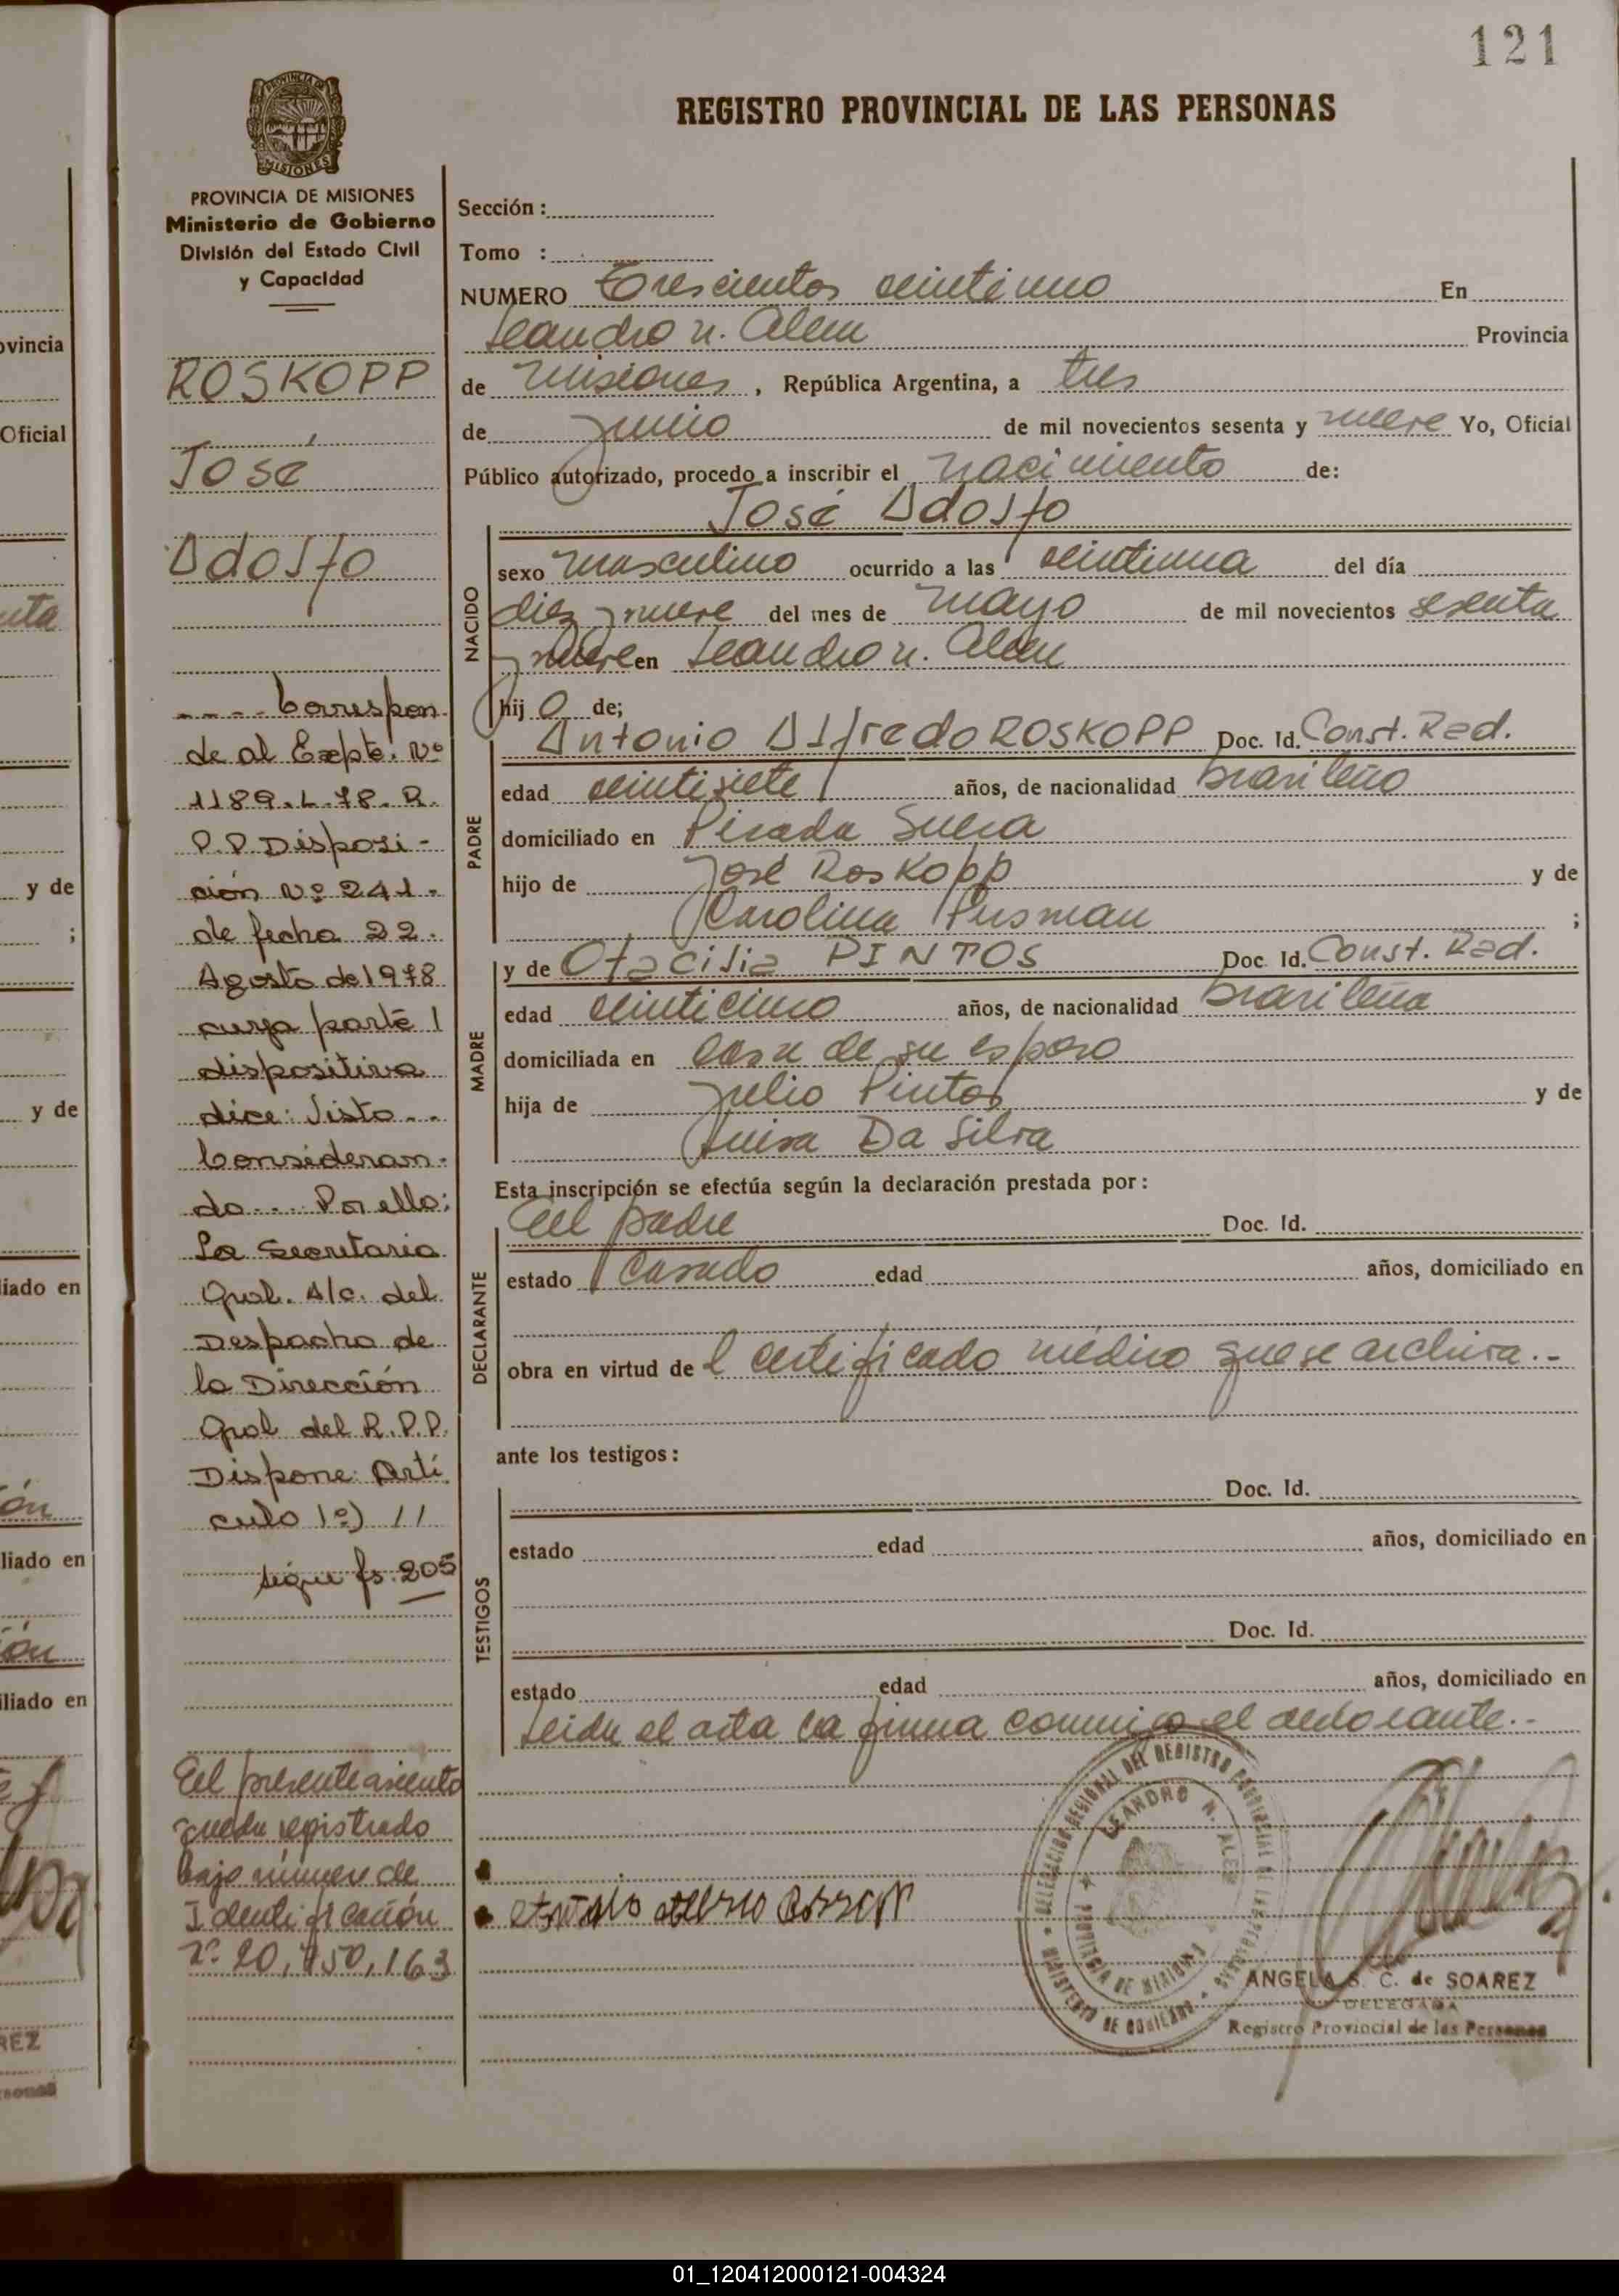 121
REGISTRO PROVINCIAL DE LAS PERSONAS
PROVINCIA DE MISIONES
Ministerio de Gobierno
División del Estado Civil
y Capacidad
ROSKOPP
José
Adolfo
---- Correspon
de al Expte. Nº
1189.L.78.R.
P.P Disposi-
ción Nº 241.
de fecha 22.
Agosto de 1978
cuya parte
dispositiva
dice: Visto...
Consideran-
do.... Por ello:
La Secretaria
Gral. A/c. del
Despacho de
la Dirección
Gral del R.P.P.
Dispone: Artí
culo 1º) //
sigue fs. 205
El presente asiento
queda registrado
bajo número de
Identificación
Nº 20,450,163
Sección :
Tomo :
NUMERO Trescientos veintiuno En
Leandro N. Alem Provincia
de Misiones , República Argentina, a tres
de Junio de mil novecientos sesenta y nueve Yo, Oficial
Público autorizado, procedo a inscribir el nacimiento de:
José Adolfo
NACIDO
sexo masculino ocurrido a las veintiuna del día
diez y nueve del mes de mayo de mil novecientos sesenta
y nueve en Leandro N. Alem
hij o de;
PADRE
Antonio Alfredo ROSKOPP Doc. Id. Const. Rad.
edad veintisiete años, de nacionalidad brasileño
domiciliado en Picada Sueca
hijo de José Roskopp y de
Carolina Pusman ;
MADRE
y de Otacilia PINTOS Doc. Id. Const. Rad.
edad veinticinco años, de nacionalidad brasileña
domiciliada en casa de su esposo
hija de Julio Pintos y de
Luisa Da Silva
Esta inscripción se efectúa según la declaración prestada por:
DECLARANTE
El padre Doc. Id.
estado Casado edad años, domiciliado en
obra en virtud de l certificado médico que se archiva.-
ante los testigos:
TESTIGOS
Doc. Id.
estado edad años, domiciliado en
Doc. Id.
estado edad años, domiciliado en
Leida el acta la firma conmigo el declarante.-
DELEGACION REGIONAL DEL REGISTRO PROVINCIAL DE LAS PERSONAS
LEANDRO N. ALEM
PROVINCIA DE MISIONES
MINISTERIO DE GOBIERNO
ANGELA S. C. de SOAREZ
DELEGADA
Registro Provincial de las Personas
ovincia
Oficial
nta
y de
;
y de
liado en
ón
liado en
ón
iliado en
REZ
rsonas
01_120412000121-004324